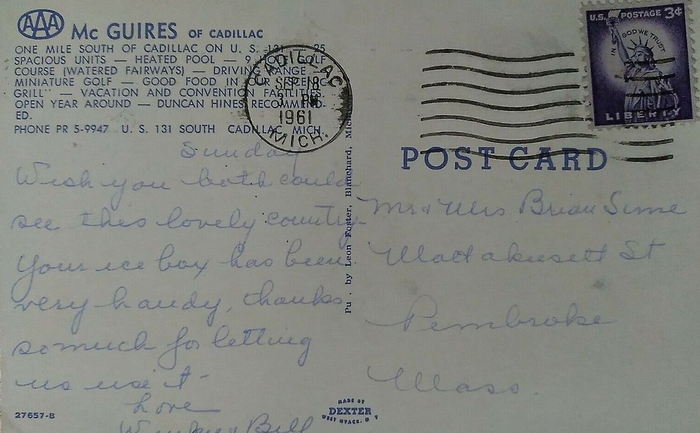 AAA Mc GUIRES OF CADILLAC
ONE MILE SOUTH OF CADILLAC ON U. S. 131 25
SPACIOUS UNITS — HEATED POOL — 9 GOLF
COURSE (WATERED FAIRWAYS) — DRIVING RANGE
MINIATURE GOLF — GOOD FOOD IN
GRILL" — VACATION AND CONVENTION FACILITIES.
OPEN YEAR AROUND — DUNCAN HINES RECOMMEND-
ED.
PHONE PR 5-9947 U. S. 131 SOUTH CADILLAC MICH.
CADILLAC
SEP 18
PM
1961
MICH.
U.S. POSTAGE 3¢
IN GOD WE TRUST
LIBERTY
POST CARD
Sunday
Wish you both could
see this lovely country.
Your ice box has been
very handy, thanks
so much for letting
us use it -
Love
Bill
Pu by Leon Foster, Blanchard, Mich
Mr & Mrs Brian Sime
Mattakusett St
Pembroke
Mass.
27657-B
MADE BY
DEXTER
WEST NYACK, N Y